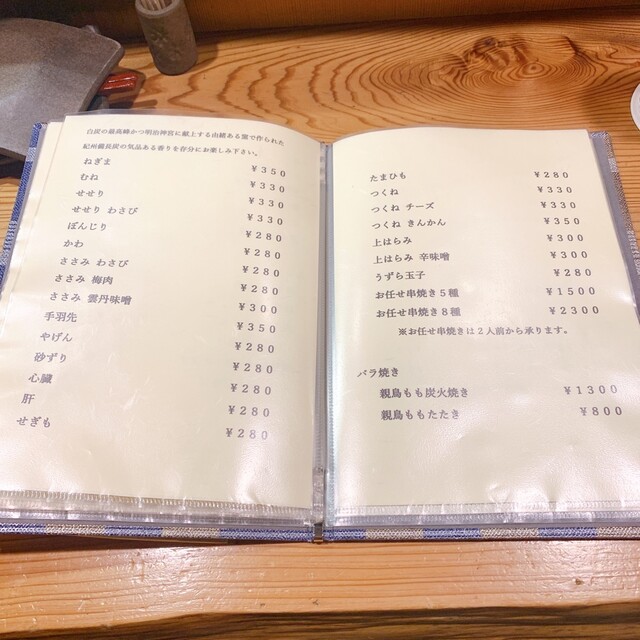 白炭の最高峰かつ明治神宮に献上する由緒ある窯で作られた
紀州備長炭の気品ある香りを存分にお楽しみ下さい。
ねぎま ¥350
むね ¥330
せせり ¥330
せせり わさび ¥330
ぼんじり ¥280
かわ ¥280
ささみ わさび ¥280
ささみ 梅肉 ¥280
ささみ 雲丹味噌 ¥300
手羽先 ¥350
やげん ¥280
砂ずり ¥280
心臓 ¥280
肝 ¥280
せぎも ¥280
たまひも ¥280
つくね ¥330
つくね チーズ ¥330
つくね きんかん ¥350
上はらみ ¥300
上はらみ 辛味噌 ¥300
うずら玉子 ¥280
お任せ串焼き5種 ¥1500
お任せ串焼き8種 ¥2300
※お任せ串焼きは2人前から承ります。
バラ焼き
親鳥もも炭火焼き ¥1300
親鳥ももたたき ¥800